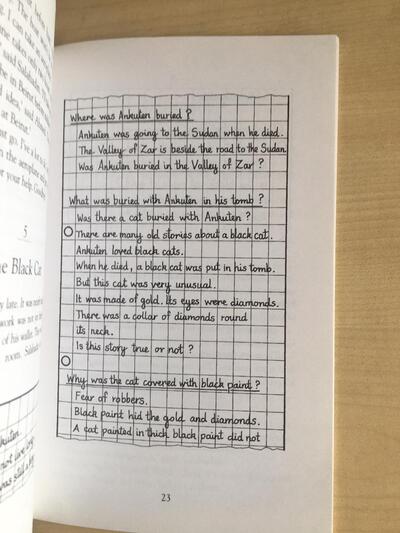 I can take
said
in Beirut before
idea,' said
at Beirut.
go. I've a lot to
the aeroplane
for your help.
5
Black Cat
late. It was
work was not in
of his wallet.
room.
Where was Ankuten buried?
Ankuten was going to the Sudan when he died.
The Valley of Zar is beside the road to the Sudan.
Was Ankuten buried in the Valley of Zar?
What was buried with Ankuten in his tomb?
Was there a cat buried with Ankuten?
There are many old stories about a black cat.
Ankuten loved black cats.
When he died, a black cat was put in his tomb.
But this cat was very unusual.
It was made of gold. Its eyes were diamonds.
There was a collar of diamonds round
its neck.
Is this story true or not?
Why was the cat covered with black paint?
Fear of robbers.
Black paint hid the gold and diamonds.
A cat painted in thick black paint did not
23